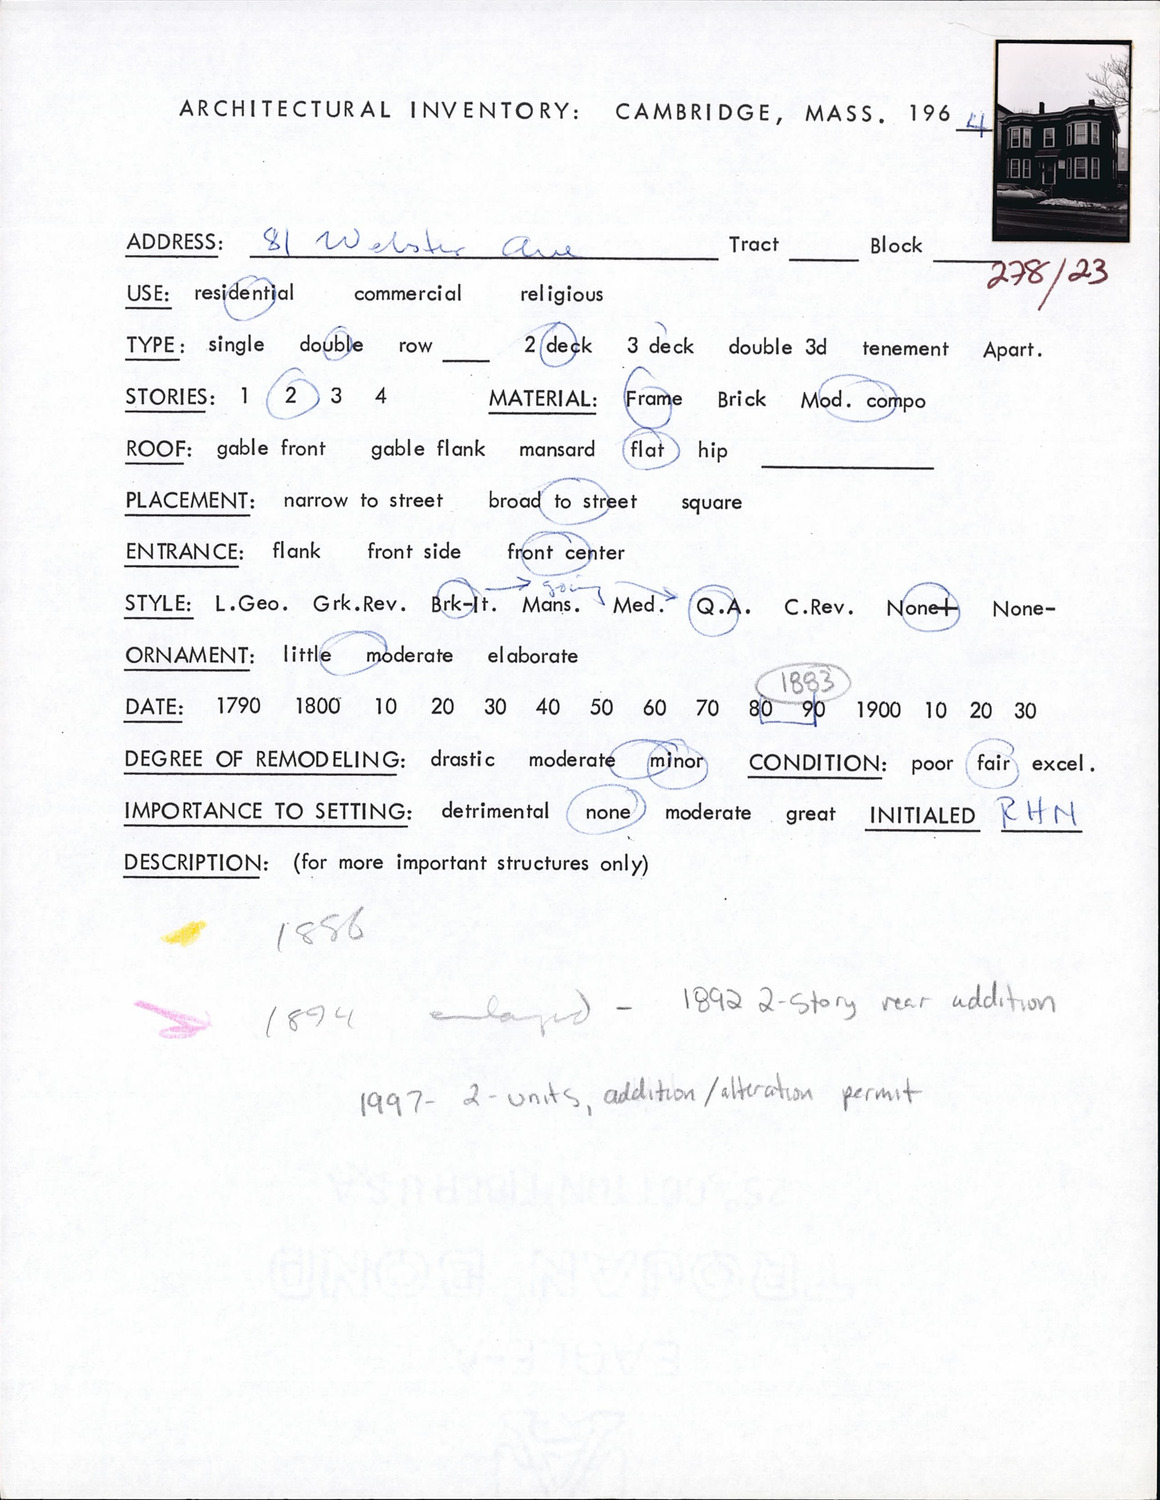 ARCHITECTURAL INVENTORY: CAMBRIDGE, MASS. 1964
ADDRESS: 81 Webster Ave Tract ____ Block ____
278/23
USE: residential commercial religious
TYPE: single double row ____ 2 deck 3 deck double 3d tenement Apart.
STORIES: 1 2 3 4 MATERIAL: Frame Brick Mod. compo
ROOF: gable front gable flank mansard flat hip ____
PLACEMENT: narrow to street broad to street square
ENTRANCE: flank front side front center
going
STYLE: L.Geo. Grk.Rev. Brk-It. Mans. Med. Q.A. C.Rev. None+ None-
ORNAMENT: little moderate elaborate
1883
DATE: 1790 1800 10 20 30 40 50 60 70 80 90 1900 10 20 30
DEGREE OF REMODELING: drastic moderate minor CONDITION: poor fair excel.
IMPORTANCE TO SETTING: detrimental none moderate great INITIALED RHN
DESCRIPTION: (for more important structures only)
1886
1894 enlarged - 1892 2-story rear addition
1997- 2-units, addition/alteration permit
TROJAN BOND